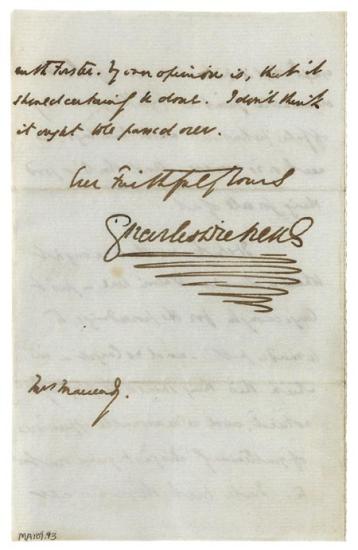 with Forster. My own opinion is, that it
should certainly be done. I don't think
it ought to be passed over.
Ever Faithfully Yours
Charles Dickens
Mrs Macready.
MA 107.93